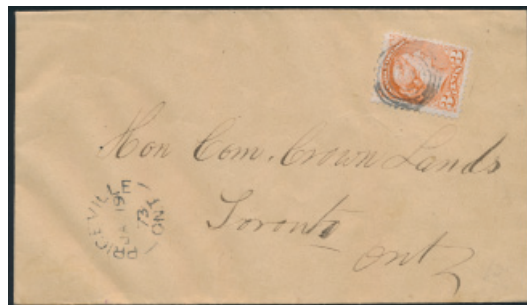 3 3
Hon Com. Crown Lands
Toronto
Ont
PRICEVILLE
JA 19
73
ONT